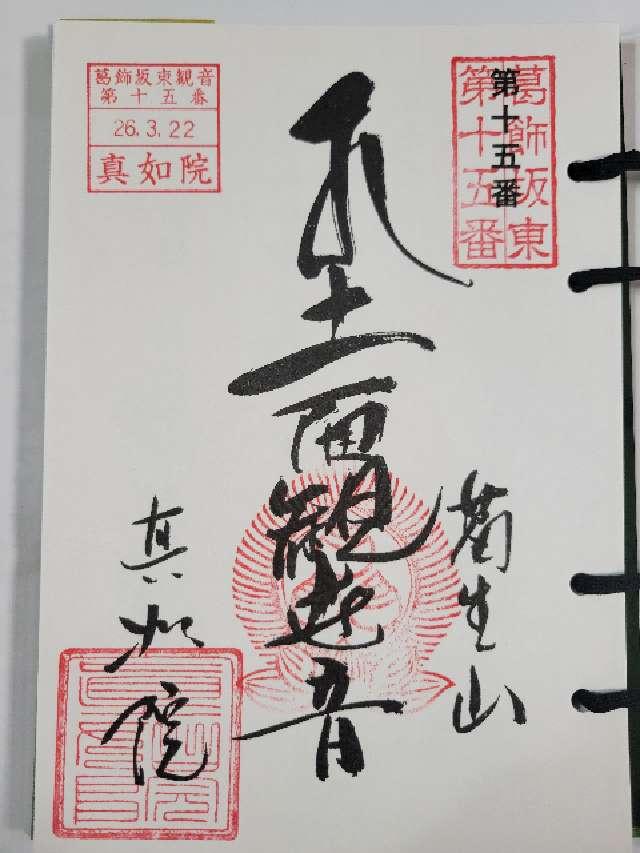 葛飾坂東
第十五番
第十五番
十一面観世音
真如院
葛飾坂東観音
第十五番
26.3.22
真如院